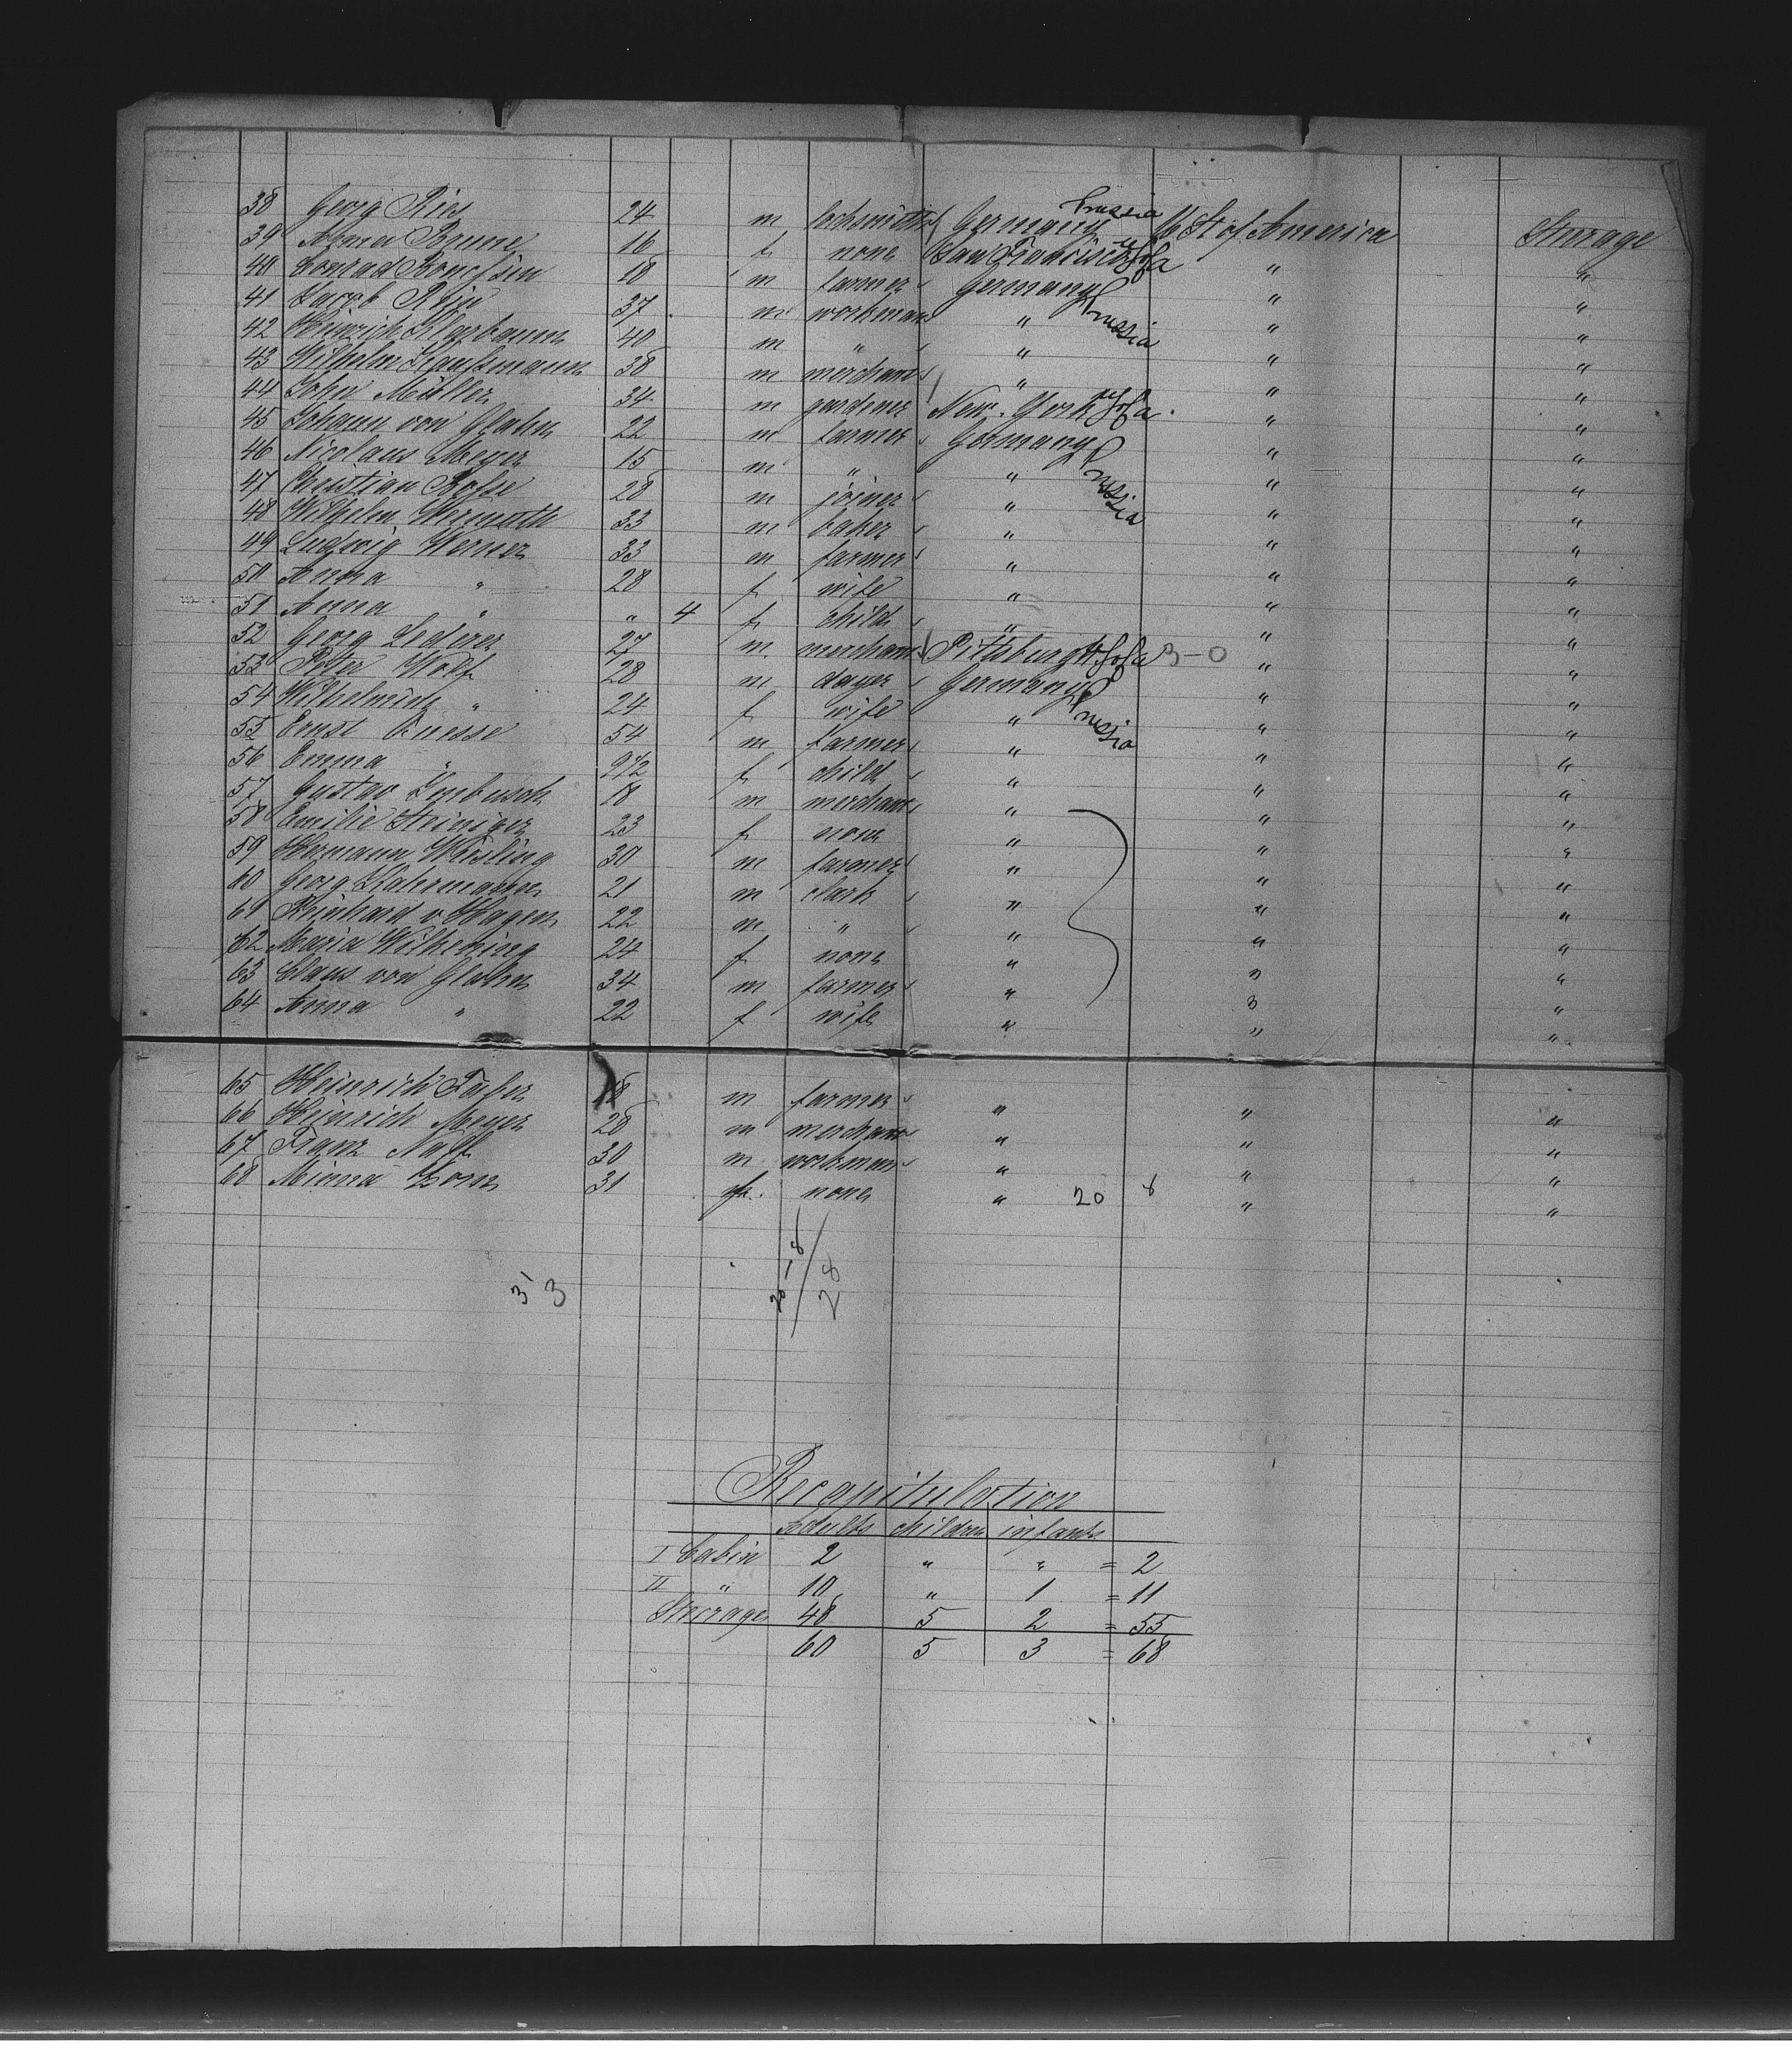 38 Georg Ries 24 m locksmith Germany Prussia U St of America Sterage
39 Anna Brune 16 f none San Francisco U.S. of a " "
40 Conrad 18 m farmer Germany " "
41 Jacob 37 m workman " Prussia " "
42 Heinrich 40 m " " " "
43 Wilhelm Kauffmann 38 m merchant " " "
44 John Müller 34 m gardener New-York U.S. of a. " "
45 Johann von Glahn 22 m farmer Germany " "
46 Nicolaus Meyer 15 m " " Prussia " "
47 Christian Rosse 28 m joiner " " "
48 Wilhelm Wermuth 33 m baker " " "
49 Ludwig Werner 33 m farmer " " "
50 Anna " 28 f wife " " "
51 Anna " " 4 f child " " "
52 Georg Lederer 27 m merchant Pittsburgh U.S. of a 3-0 " "
53 Peter Wolf 28 m dayer Germany " "
54 Wilhelmine " 24 f wife " Prussia " "
55 Ernst 54 m farmer " " "
56 Emma " 9 1/2 f child " " "
57 Gustav 18 m merchant " " "
58 Emilie Steiniger 23 f none " " "
59 Hermann Wissling 30 m farmer " " "
60 Georg 21 m clark " " "
61 Reinhard v Hagen 22 m " " " "
62 Maria Wilkening 24 f none " " "
63 Claus von Glahn 34 m farmer " " "
64 Anna " 22 f wife " " "
65 Heinrich 18 m farmer " " "
66 Heinrich Meyer 28 m merchant " " "
67 Franz 30 m workman " " "
68 Minna Zorn 31 f. none " 20 8 " "
3 3
20-8
28
Recapitulation
Adults children infants
I Cabin 2 " " = 2
II " 10 " 1 = 11
Sterrage 48 5 2 = 55
60 5 3 = 68